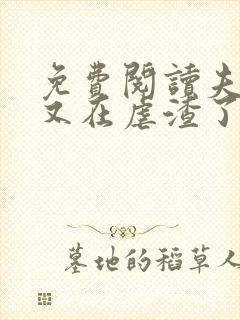 免費閱讀夫
又在虐渣了
墓地的稻草人